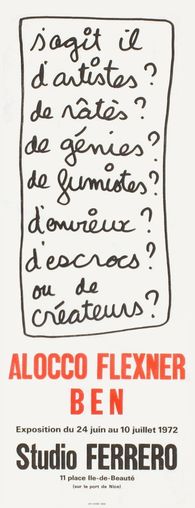 s'agit il
d'artistes?
de râtés?
de génies?
de fumistes?
d'envieux?
d'escrocs?
ou de
créateurs?
ALOCCO FLEXNER
BEN
Exposition du 24 juin au 10 juillet 1972
Studio FERRERO
11 place Ile-de-Beauté
(sur le port de Nice)